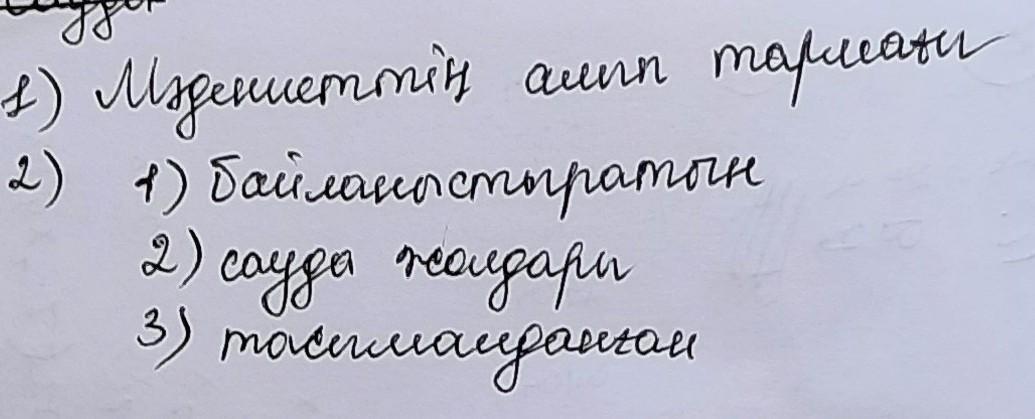 1) Мәдениеттің алып тармағы
2) 1) байланыстыратын
2) сауда жолдары
3) тасымалданған